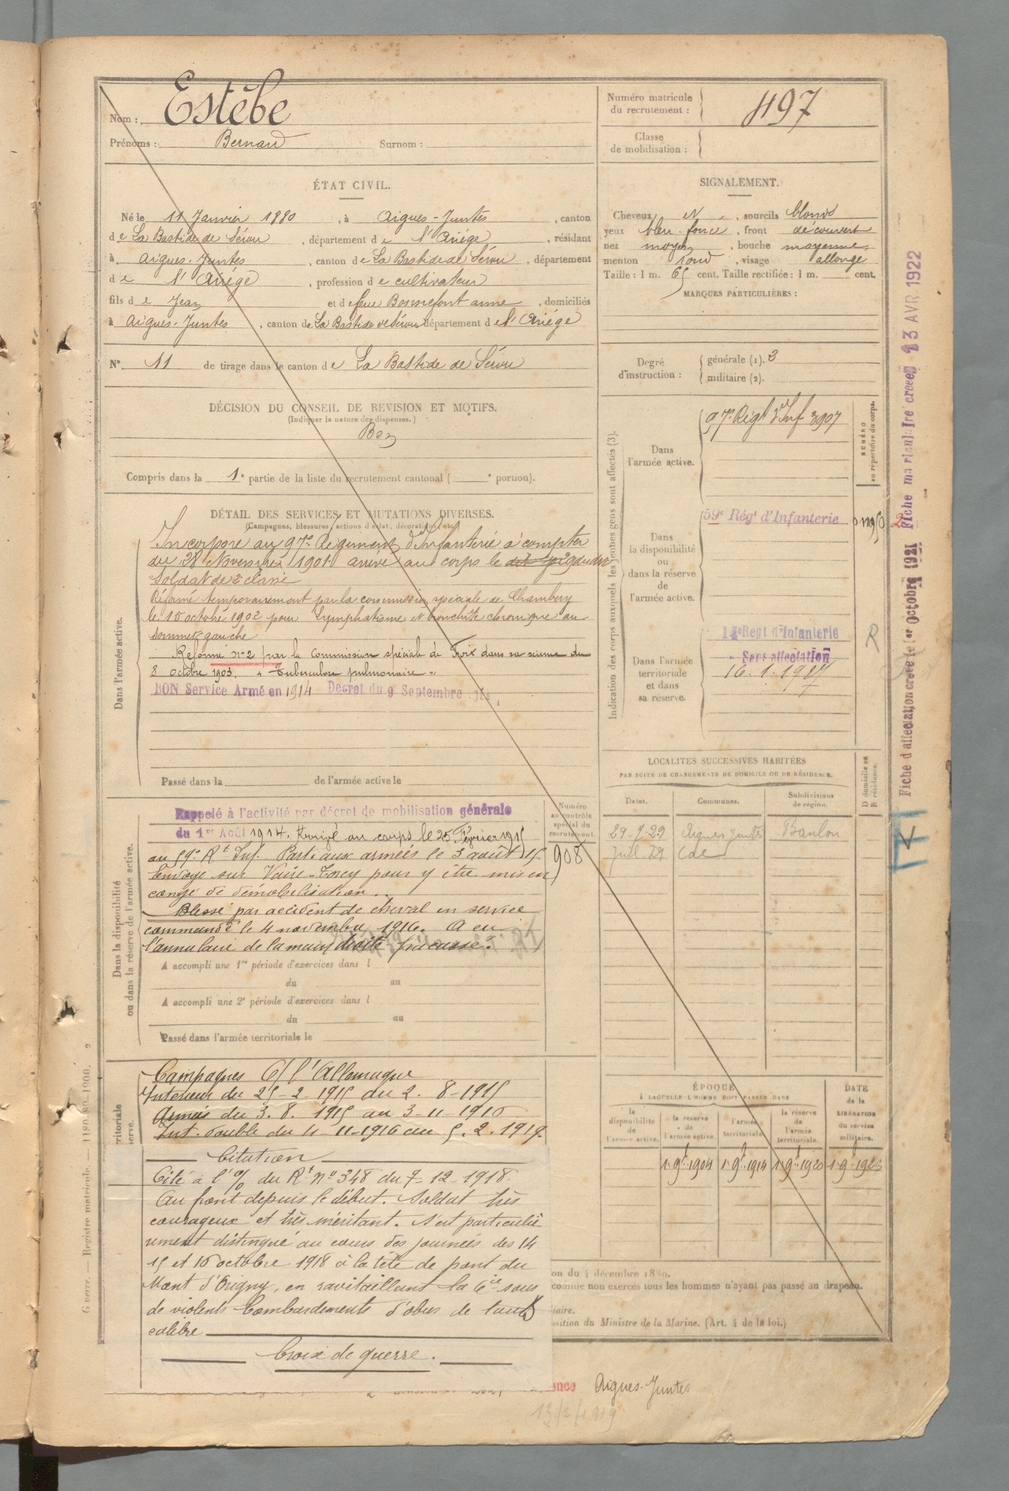 Nom : Estèbe
Prénoms : Bernard Surnom :
Numéro matricule
du recrutement : 497
Classe
de mobilisation :
ÉTAT CIVIL.
Né le 11 Janvier 1880, à Aigues-Juntes, canton
de La Bastide de Sérou, département de l'Ariége, résidant
à Aigues-Juntes, canton de La Bastide de Sérou, département
de l'Ariége, profession de cultivateur
fils de Jean et de feue Bonnefont anne, domiciliés
à Aigues-Juntes, canton de La Bastide de Sérou département de l'Ariége
N° 11 de tirage dans le canton de La Bastide de Sérou
SIGNALEMENT.
Cheveux N, sourcils blonds
yeux bleu foncé, front découvert
nez moyen, bouche moyenne
menton rond, visage allongé
Taille : 1 m. 65 cent. Taille rectifiée : 1 m. cent.
MARQUES PARTICULIÈRES :
Degré
d'instruction :
générale (1). 3
militaire (2).
DÉCISION DU CONSEIL DE REVISION ET MOTIFS.
(Indiquer la nature des dispenses.)
Bon
Compris dans la 1e partie de la liste du recrutement cantonal ( e portion).
DÉTAIL DES SERVICES ET MUTATIONS DIVERSES.
(Campagnes, blessures, actions d'éclat, décorations, etc.)
Dans l'armée active.
Incorporé au 97e Régiment d'Infanterie à compter
du 28 Novembre 1901 arrivé au corps le dit jour
Soldat de 2e classe
Réformé temporairement par la commission spéciale de Chambéry
le 10 octobre 1902 pour Lymphatisme et bronchite chronique au
sommet gauche
Réformé n°2 par la Commission spéciale de Foix dans sa séance du
8 octobre 1903. « Tuberculose pulmonaire »
BON Service Armé en 1914 Décret du 9 Septembre
Passé dans la de l'armée active le
Indication des corps auxquels les jeunes gens sont affectés (3).
Dans
l'armée active.
97e Régt d'Inf 3907
NUMÉRO
au répertoire du corps.
Dans
la disponibilité
ou
dans la réserve
de
l'armée active.
59e Régt d'Infanterie
Dans l'armée
territoriale
et dans
sa réserve.
Regt d'Infanterie
Sans affectation
R
Fiche d'affectation créée le 1er octobre 1921
13 AVR 1922
LOCALITÉS SUCCESSIVES HABITÉES
PAR SUITE DE CHANGEMENTS DE DOMICILE OU DE RÉSIDENCE.
Dates. Communes. Subdivisions
de région.
D domicile ou
R résidence.
Aigues Juntes
Dans la disponibilité
ou dans la réserve de l'armée active.
Numéro
au contrôle
spécial du
recrutement.
908
Rappelé à l'activité par décret de mobilisation générale
du 1er Août 1914. Arrivé au corps le 25 Février 1915
au 59e Rt Inf. Parti aux armées le 3 août 15
Envoyé sur Vaire-Torcy pour y être mis en
congé de démobilisation.
Blessé par accident de cheval en service
commandé le 4 novembre 1916. A eu
l'annulaire de la main droite fracassé.
A accompli une 1re période d'exercices dans l
du au
A accompli une 2e période d'exercices dans l
du au
Passé dans l'armée territoriale le
Campagnes C/ l'Allemagne
Intérieur du 25-2 1915 du 2.8-1915
Armées du 3.8.1915 au 3-11-1916
Int. double du 4 11-1916 au 5.2.1919
Citation
Cité à l'o/ du Rt n° 348 du 7-12-1918.
Au front depuis le début. Soldat très
courageux et très méritant. S'est particuliè
rement distingué au cours des journées des 14
15 et 16 octobre 1918 à la tête de pont du
Mont d'Origny, en ravitaillant la Cie sous
de violents bombardements d'obus de tous
calibre
Croix de guerre.
ÉPOQUE
À LAQUELLE L'HOMME DOIT PASSER DANS
la
disponibilité
de
l'armée active.
la réserve
de
l'armée active.
l'armée
territoriale.
la réserve
de
l'armée
territoriale.
DATE
de la
LIBÉRATION
du service
militaire.
1 9 1904 1 9 1914 1 9 1920
Aigues-Juntes
position du Ministre de la Marine. (Art. 4 de la loi.)